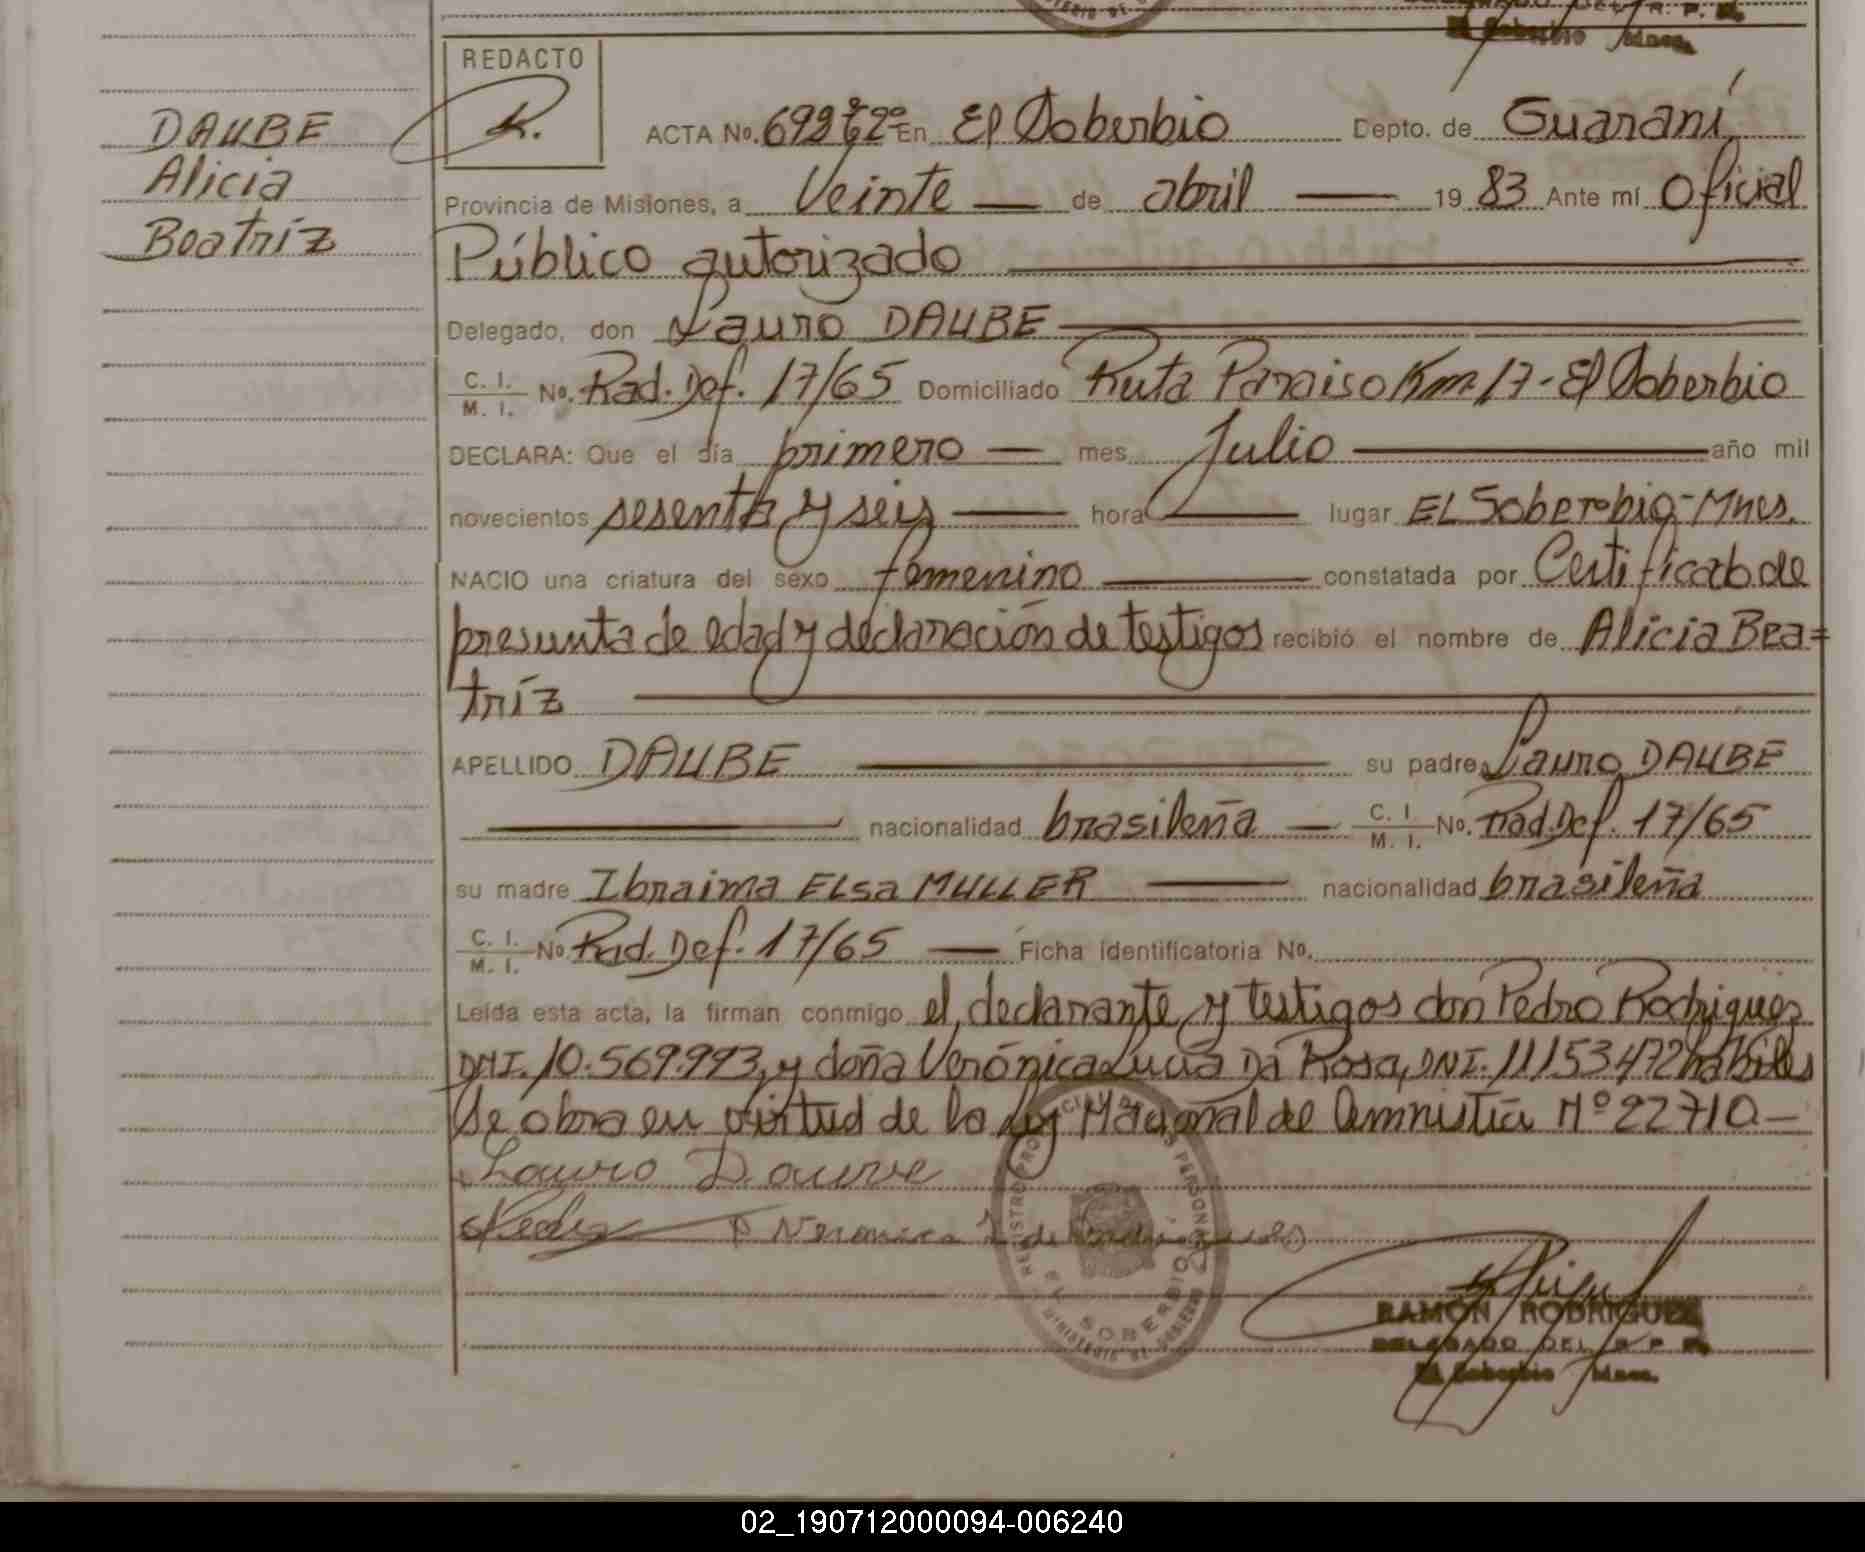 REDACTO
R.
DAUBE
Alicia
Beatríz
ACTA No. 692 Tº 2º En El Soberbio Depto. de Guaraní
Provincia de Misiones, a Veinte — de abril — 19 83 Ante mí Oficial
Público autorizado
Delegado, don Lauro DAUBE
C. I. / M. I. No. Rad. Def. 17/65 Domiciliado Ruta Paraiso Km. 17 - El Soberbio
DECLARA: Que el día primero — mes Julio — año mil
novecientos sesenta y seis — hora — lugar EL Soberobio - Mnes.
NACIO una criatura del sexo femenino — constatada por Certificado de
presunta de edad y declaración de testigos recibió el nombre de Alicia Bea=
tríz
APELLIDO DAUBE — su padre Lauro DAUBE
— nacionalidad brasileña — C. I. / M. I. No. Rad. Def. 17/65
su madre Ibraima ELSA MULLER — nacionalidad brasileña
C. I. / M. I. No. Rad. Def. 17/65 — Ficha identificatoria No.
Leída esta acta, la firman conmigo el declarante y testigos don Pedro Rodriguez
DNI. 10.569.993, y doña Verónica Lucia Da Rosa, DNI. 11153472 habiles
Se obra en virtud de la Ley Nacional de Amnistía Nº 22710 —
Lauro Dauve
RAMÓN RODRIGUEZ
DELEGADO DEL R. P. P.
El Soberbio Mnes.
02_190712000094-006240